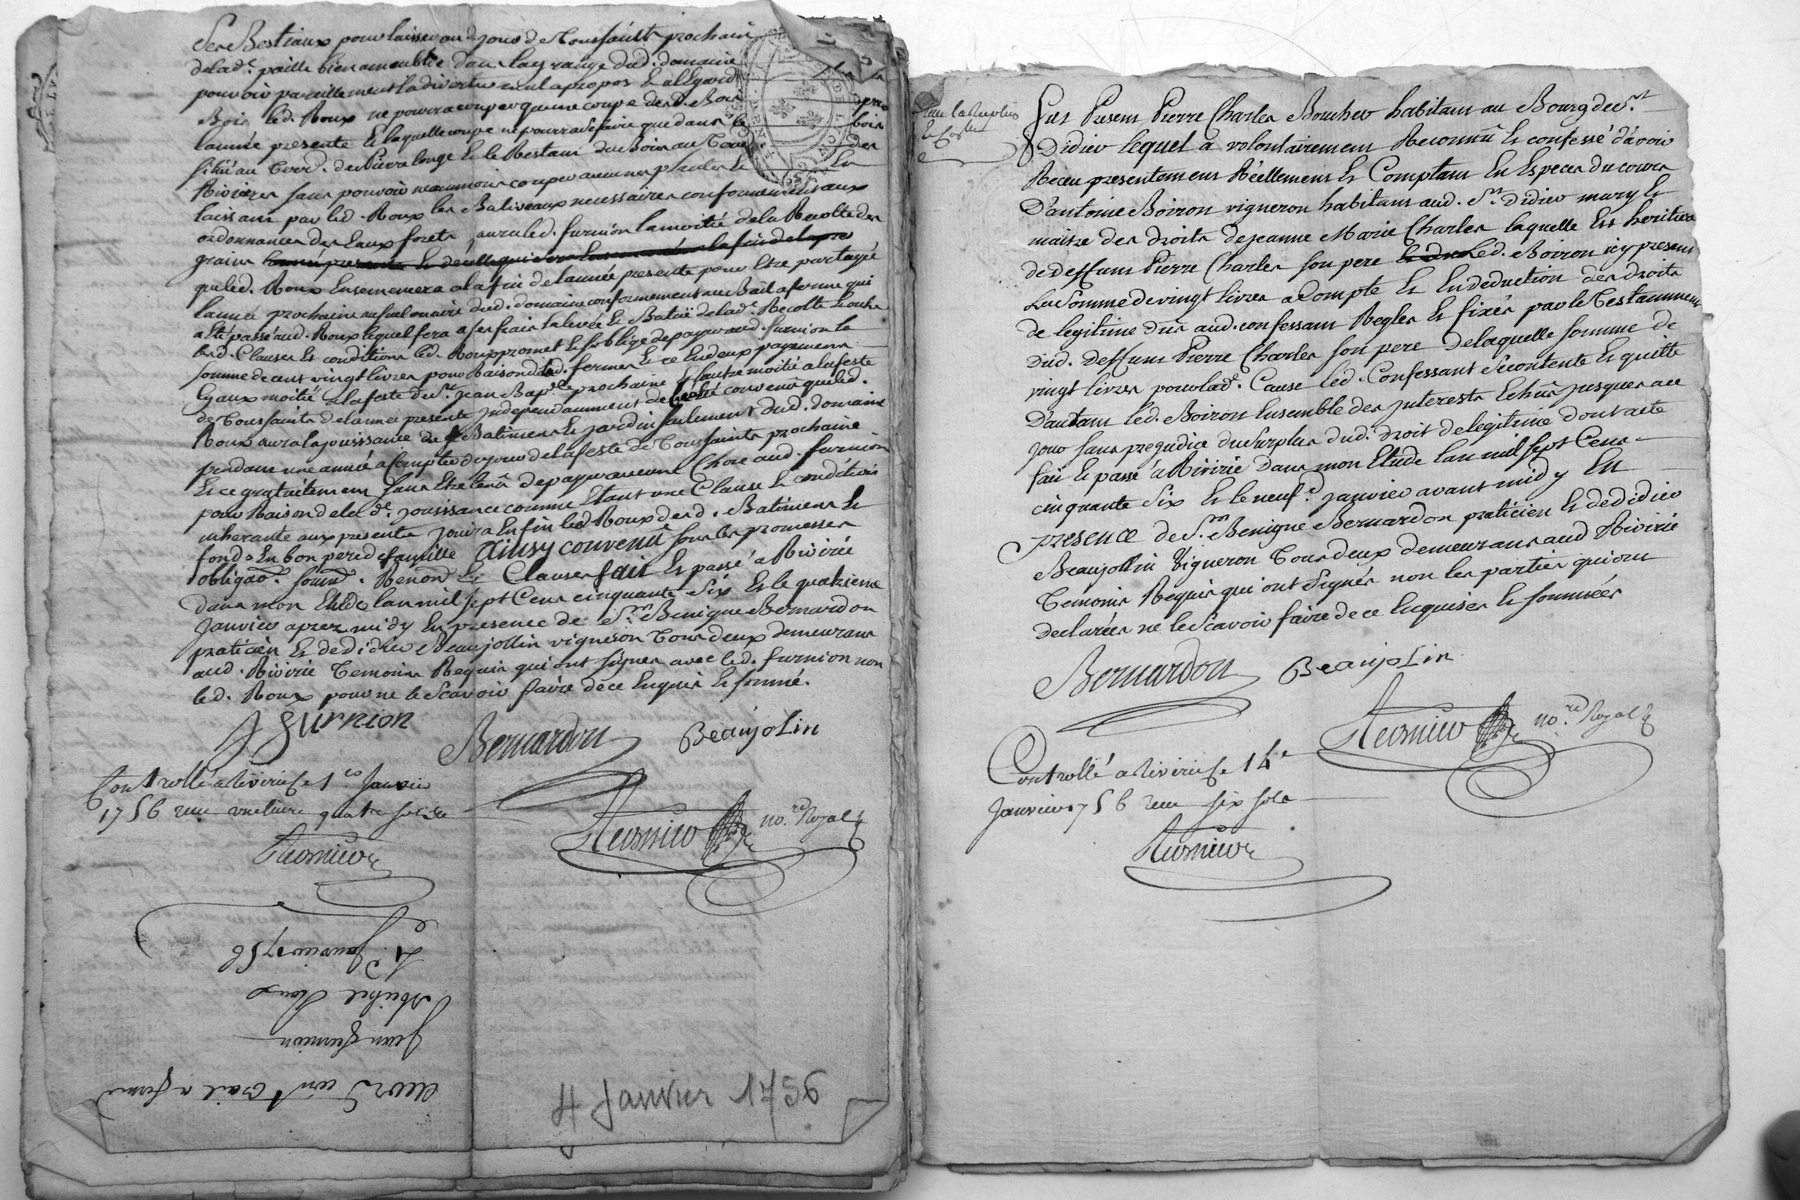 ses Bestiaux pour laisser au jour de Toussaints prochain
de lad.e paille bien ameublée dans la grange dud. domaine
pouvoir pareillement la divertir
Bois led. Roux ne pourra couper qu'une coupe desd. Bois
l'année presente et laquelle coupe ne pourra se faire que dans le bois
situé au Terr. de Pierre longe et le Restant du Bois au Terr.
Rivieres sans pouvoir neanmoins couper aucunes plantes
laissant par led. Roux les Baliveaux necessaires conformement aux
ordonnances des Eaux forets, aura led. furnion la moitié de la Recolte des
grains
que led. Roux Ensemencera a la fin de l'année presente pour Etre partagé
l'année prochaine dud. domaine conformement au Bail a ferme qui
a été passé aud. Roux lequel fera a ses frais la levée et Batüe de lad.e Recolte
Clauses et conditions led. Roux promet et s'oblige de payer aud. furnion la
somme de cent vingt livres pour Raison de lad. ferme et ce en deux payements
Egaux moitié a la feste de St. jean Bap.te prochaine et l'autre moitié a la feste
de Toussaints de l'année presente independamment de ce convenu que led.
Roux aura la jouissance des Batiments et jardin seulement dud. domaine
pendant une année a Compter du jour de la feste de Toussaints prochaine
Et ce gratuitement sans Etre tenu de payer aucune Chose aud. furnion
pour Raison de lad.e jouissance comme Etant une Clause et condition
inherante aux presentes jouira Enfin led. Roux desd. Batiments et
fonds En bon pere de famille Ainsy convenu sous les promesses
obligaõ. soum. Renonc. Et Clauses fait Et passé a Rivirie
dans mon Etude l'an mil sept Cens cinquante six Et le quatrieme
Janvier aprez midy En presence de Sr. Benigne Bernardon
praticien Et de didier Beaujollin vigneron Tous deux demeurans
aud. Rivirie Temoins Requis qui ont signés avec led. furnion non
led. Roux pour ne le sçavoir faire de ce Enquis Et sommé.
J furnion
Bernardon
Beaujolin
Controllé a Rivirie le Janvier
1756 reçu quatre sols
no.re Royal
Janvier 1756
Michel Roux
Jean furnion
Bail a ferme
4 Janvier 1756
Fut Present Pierre Charles Boucher habitant au Bourg de St.
Didier lequel a volontairement Reconnu Et confessé d'avoir
Receu presentement Réellement Et Comptant En Especes du cours
D'antoine Boiron vigneron habitant aud. St. Didier mary Et
maitre des droits de jeanne Marie Charles laquelle Est heritiere
de deffunt Pierre Charles son pere led. Boiron icy present
La Somme de vingt livres a Compte Et En deduction des droits
de legitime dus aud. confessant Reglés Et fixés par le Testamment
dud. deffunt Pierre Charles son pere de laquelle somme de
vingt livres pour lad.e Cause led. Confessant se contente Et quitte
D'autant led. Boiron Ensemble des interests Echus jusques a ce
jour sans prejudice du surplus dud. droit de legitime dont acte
fait Et passé a Rivirie dans mon Etude l'an mil sept Cens
cinquante six Et le neuf.e janvier avant midy En
presence de Sr. Benigne Bernardon praticien Et de didier
Beaujollin Vigneron Tous deux demeurans aud. Rivirie
Temoins Requis qui ont Signés non les parties qui ont
declarées ne le sçavoir faire de ce Enquises Et sommées
Bernardon
Beaujolin
no.re Royal
Controllé a Rivirie le 14e
Janvier 1756 reçu six sols